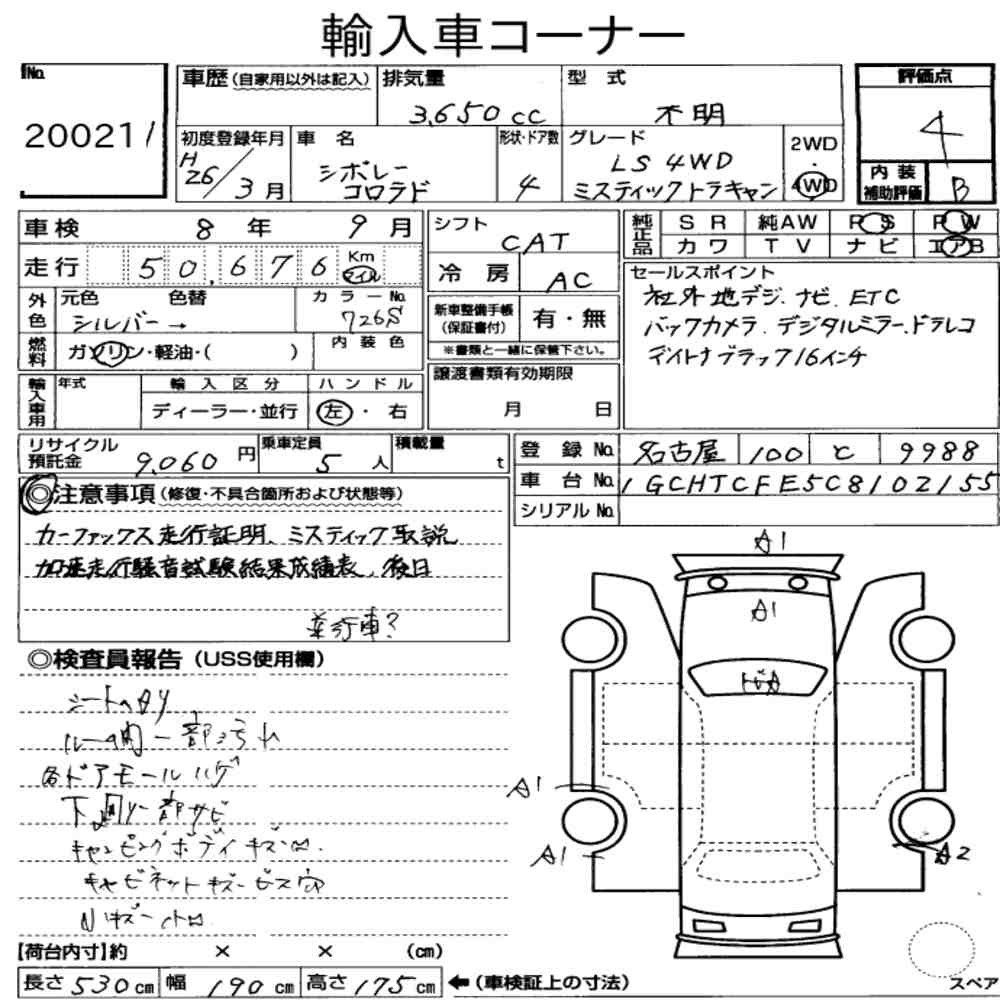 輸入車コーナー
No. 20021/
車歴 (自家用以外は記入)
排気量 3,650cc
型式 不明
評価点 4
初度登録年月 H26/3月
車名 シボレー コロラド
形状・ドア数 4
グレード LS 4WD ミスティックトラキャン
2WD・4WD
内装補助評価 B
車検 8年 9月
シフト CAT
純正品 SR 純AW PS PW
カワ TV ナビ エアB
走行 50,676 Km マイル
冷房 AC
セールスポイント
社外地デジ、ナビ、ETC
バックカメラ、デジタルミラー、ドラレコ
デイトナブラック16インチ
外色 元色 色替 シルバー→
カラーNo. 726S
新車整備手帳(保証書付) 有・無
※書類と一緒に保管下さい。
燃料 ガソリン・軽油・( )
内装色
輸入車用 年式
輸入区分 ディーラー・並行
ハンドル 左・右
譲渡書類有効期限
月 日
リサイクル預託金 9,060円
乗車定員 5人
積載量 t
登録No. 名古屋 100 と 9988
車台No. 1GCHTCFE5C8102155
シリアルNo.
◎注意事項 (修復・不具合箇所および状態等)
カーファックス走行証明、ミスティック取説
加速走行騒音試験結果成績表、後日
並行車?
◎検査員報告 (USS使用欄)
シートヘタリ
ルーフ内一部汚れ
各ドアモールハゲ
下廻り一部サビ
キャンピングボディキズ凹
キャビネットキズ・ビス穴
内キズ・凹
A1
A1
トビA
A1
A1
A2
【荷台内寸】約 × × (cm)
長さ530cm 幅190cm 高さ175cm ←(車検証上の寸法)
スペア